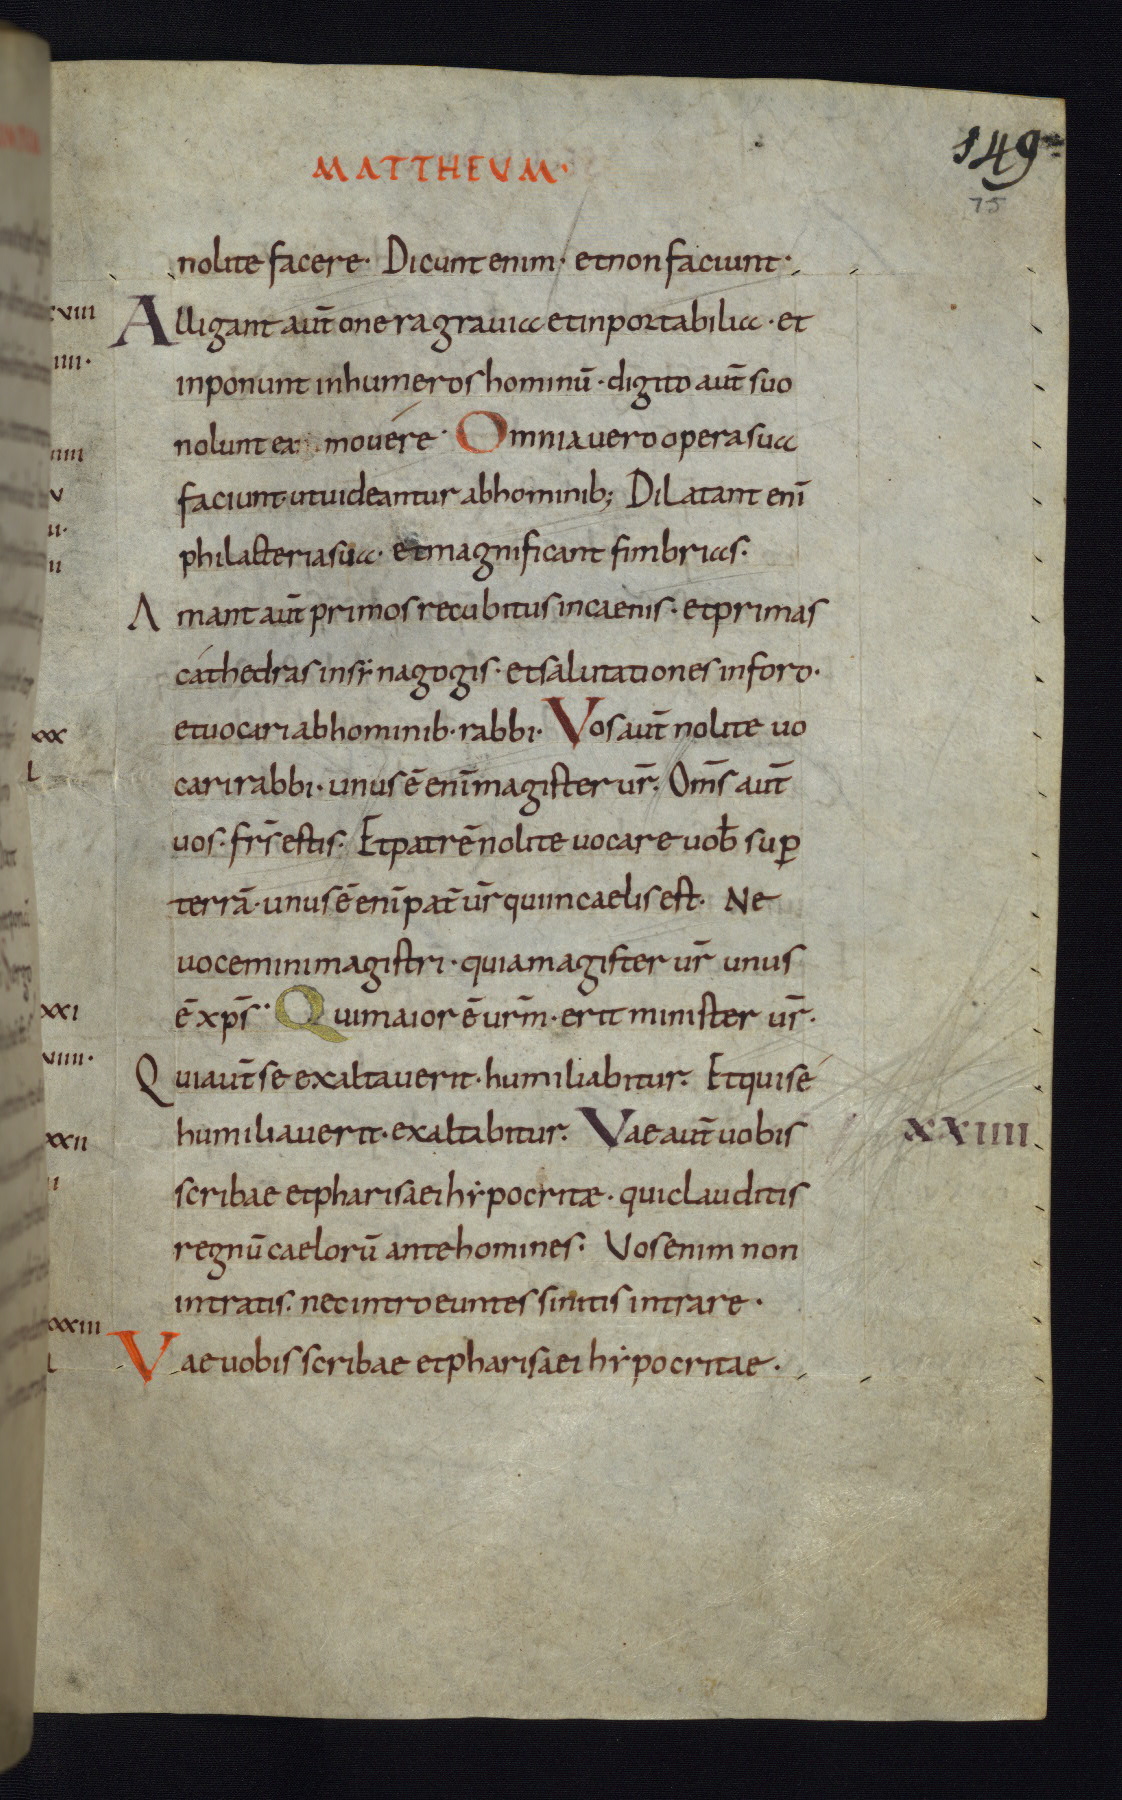 MATTHEUM·
149
75
nolite facere· Dicunt enim· et non faciunt·
Alligant aut̄ onera grauia et inportabilia· et
inponunt in humeros hominū· digito aut̄ suo
nolunt ea mouere· Omnia uero opera sua
faciunt· ut uideantur ab hominib; Dilatant enī
philacteria sua· et magnificant fimbrias·
Amant aut̄ primos recubitus in caenis· et primas
cathedras in sẏnagogis· et salutationes in foro·
et uocari ab hominib· rabbi· Vos aut̄ nolite uo
cari rabbi· unus ē enī magister ur̄· Om̄s aut̄
uos· frs̄ estis· Et patrē nolite uocare uob̄ suꝑ
terrā· unus ē enī pat̄ ur̄ qui in caelis est· Ne
uocemini magistri· quia magister ur̄ unus
ē xps̄· Qui maior ē urm̄· erit minister ur̄·
Qui aut̄ se exaltauerit· humiliabitur· Et qui se
humiliauerit· exaltabitur· Vae aut̄ uobis
XXIIII
scribae et pharisaei hẏpocritæ· qui clauditis
regnū caelorū ante homines· Vos enim non
intratis· nec introeuntes sinitis intrare·
Vae uobis scribae et pharisaei hẏpocritae·